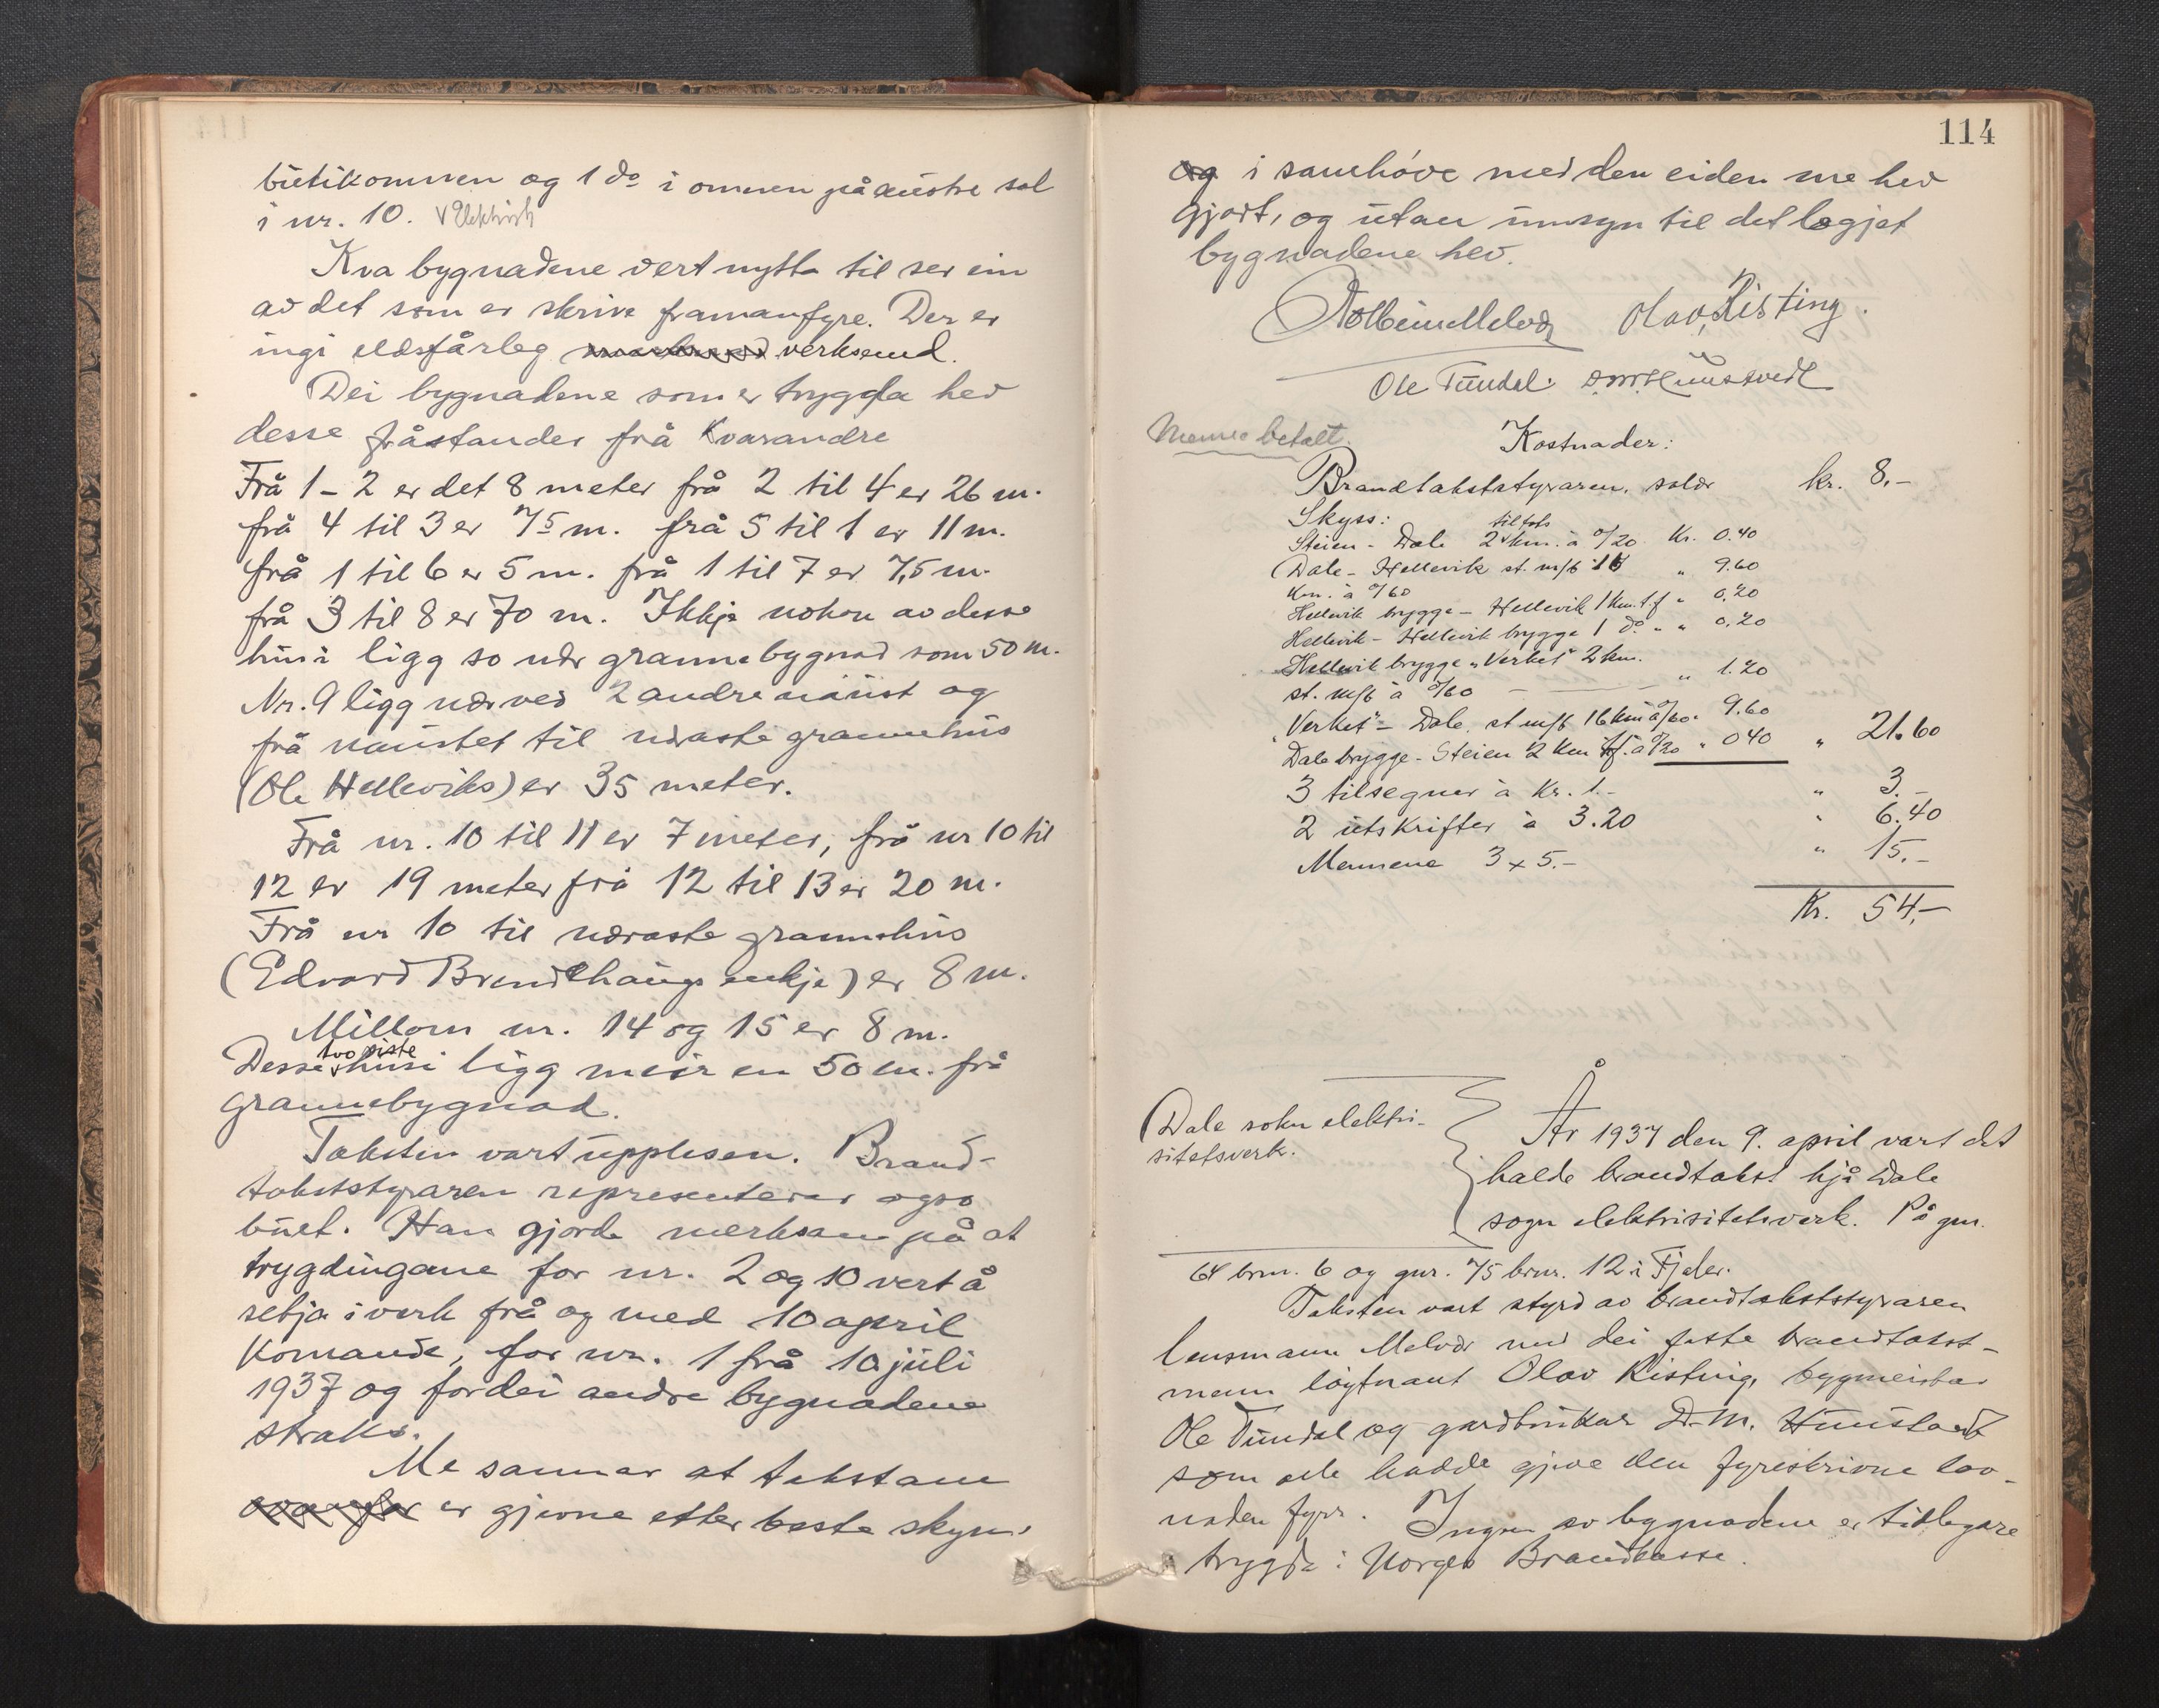 butikomnen og 1 do i omnen på austre sal
i nr. 10. v Elektrisk
Kva bygnadene vert nytta til ser ein
av det som er skrive framanfyre. Der er
ingi eldsfårleg verksemd.
Dei bygnadene som er trygda hev
desse fråstander frå kvarandre
Frå 1 - 2 er det 8 meter frå 2 til 4 er 26 m.
frå 4 til 3 er 75 m. frå 5 til 1 er 11 m.
frå 1 til 6 er 5 m. frå 1 til 7 er 7,5 m.
frå 3 til 8 er 70 m. Ikkje nokon av desse
husi ligg so nær grannebygnad som 50 m.
Nr. 9 ligg nær ved 2 andre naust og
frå naustet til næraste grannehus
(Ole Helleviks) er 35 meter.
Frå nr. 10 til 11 er 7 meter, frå nr 10 til
12 er 19 meter frå 12 til 13 er 20 m.
Frå nr 10 til næraste grannehus
(Edvard Brendehaugs enkje) er 8 m.
Millom nr. 14 og 15 er 8 m.
Desse two siste husi ligg meir en 50 m. frå
grannebygnad.
Taksten vart upplesen. Brand-
takststyraren representerer ogso
buet. Han gjorde merksam på at
trygdingane for nr. 2 og 10 vert å
setja i verk frå og med 10 april
komande, for nr. 1 frå 10 juli
1937 og for dei andre bygnadene
straks.
Me sannar at takstane
ovanfor er gjevne etter beste skyn,
114
og i samhøve med den eiden me hev
gjort, og utan umsyn til det lægjet
bygnadene hev.
Olav Risting.
Ole Tundal.
Mennene betalt.
Kostnader:
Brandtakststyraren, salær kr. 8,-
Skyss:
Steien - Dale 2 km. til fots à 0/20 Kr. 0.40
Dale - Hellevik st. m/b 16 " 9.60
km. à 0/60
Hellevik brygge - Hellevik 1 km. t.f " 0,20
Hellevik - Hellevik brygge 1 do " " 0,20
Hellevik brygge "Verket" 2 km.
st. m/b à 0/60 " 1.20
"Verket" - Dale st m/b 16 km à 0/60. 9.60
Dale brygge - Steien 2 km t.f. à 0/20 " 0 40 " 21.60
3 tilsegner à kr. 1.- " 3.-
2 utskrifter à 3.20 " 6.40
Mennene 3 x 5.- " 15.-
Kr. 54,-
Dale sokn elektri-
sitetsverk.
År 1937 den 9. april vart det
halde brandtakst hjå Dale
sogn elektrisitetsverk. På gnr.
64 brn. 6 og gnr. 75 brnr. 12 i Fjaler.
Taksten vart styrd av brandtakststyraren
lensmann Melvær med dei faste brandtakst-
menn løytnant Olav Risting, bygmeistar
Ole Tundal og gardbrukar D. M. Hunstadt
som alle hadde gjeve den fyreskrivne lov-
naden fyrr. Ingen av bygnadene er tidlegare
trygda i Norges Brandkasse.